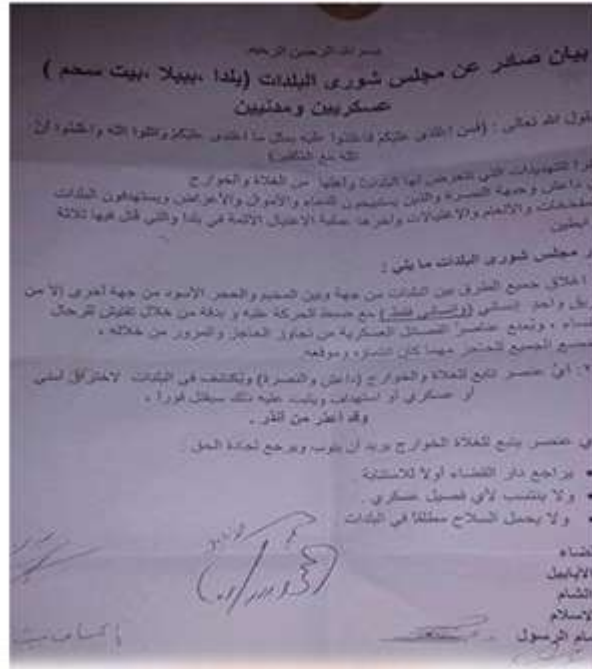 بسم الله الرحمن الرحيم
بيان صادر عن مجلس شورى البلدات (يلدا ،ببيلا ،بيت سحم )
عسكريين ومدنيين
يقول الله تعالى : (فمن اعتدى عليكم فاعتدوا عليه بمثل ما اعتدى عليكم واتقوا الله واعلموا أن
الله مع المتقين)
التهديدات التي تتعرض لها البلدات وأهلها من الغلاة والخوارج
داعش وجبهة النصرة والذين يستبيحون الدماء والأموال والأعراض ويستهدفون البلدات
بالمفخخات والألغام والاغتيالات وآخرها عملية الاغتيال الآثمة في يلدا والتي قتل فيها ثلاثة
مجلس شورى البلدات ما يلي :
اغلاق جميع الطرق بين البلدات من جهة وبين المخيم والحجر الأسود من جهة أخرى إلا من
واحد إنساني (وإنساني فقط) مع ضبط الحركة عليه و بدقة من خلال تفتيش للرجال
، وتمنع عناصر الفصائل العسكرية من تجاوز الحاجز والمرور من خلاله ،
الجميع للحاجز مهما كان انتماؤه وموقعه
٢: أي عنصر تابع للغلاة والخوارج (داعش والنصرة) ويكتشف في البلدات لاختراق أمني
أو عسكري أو استهداف ويثبت عليه ذلك سيقتل فوراً .
وقد أعذر من أنذر .
أي عنصر يتبع للغلاة الخوارج يريد أن يتوب ويرجع لجادة الحق :
• يراجع دار القضاء أولا للاستتابة
• ولا ينتسب لأي فصيل عسكري .
• ولا يحمل السلاح مطلقا في البلدات
القضاء
الأبابيل
الشام
الاسلام
الرسول